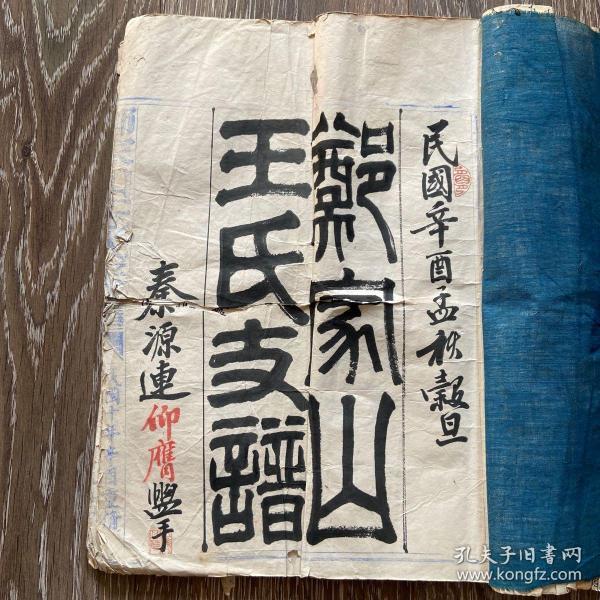 民國辛酉孟秋穀旦
鄭家山
王氏支譜
秦源連仰膺盥手
孔夫子旧书网
www.kongfz.com